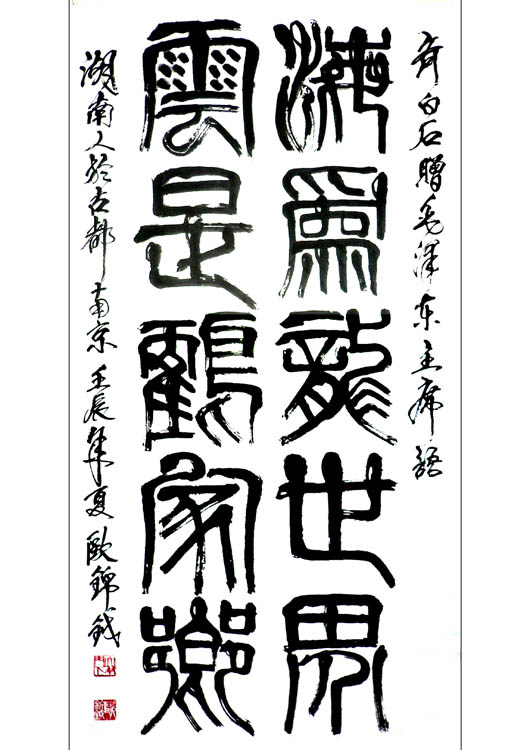 齐白石赠毛泽东主席语
海為龍世界
雲是鶴家鄉
湖南人於古都南京壬辰年夏欧锦钱